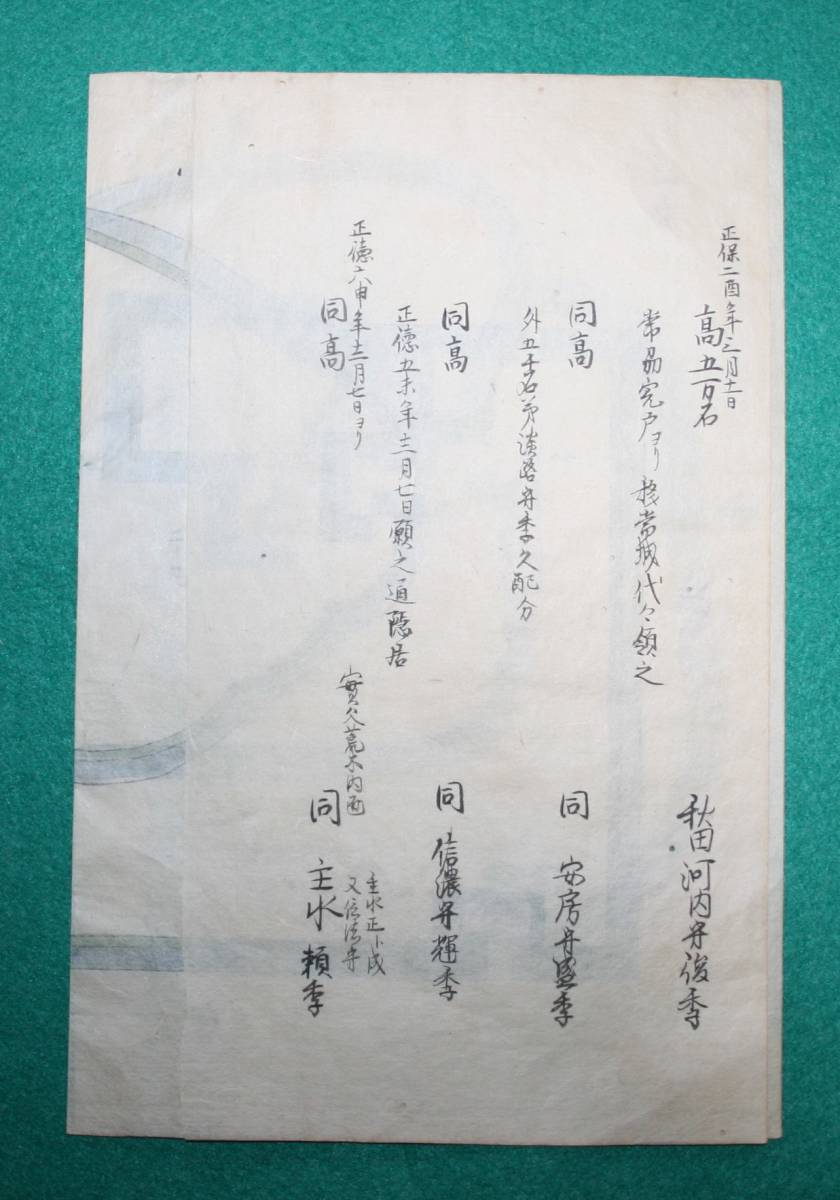 正保二酉年三月十一日
高五万石
秋田河内守俊季
常刕宍戸ヨリ移当城代々領之
同高
同 安房守盛季
外五千石弟淡路守季久配分
同高
同 信濃守輝季
正徳五未年十二月七日願之通隠居
正徳六申年十二月七日ヨリ
同高
實父荒木内匠
同 主水頼季
主水正ト成
又信濃守